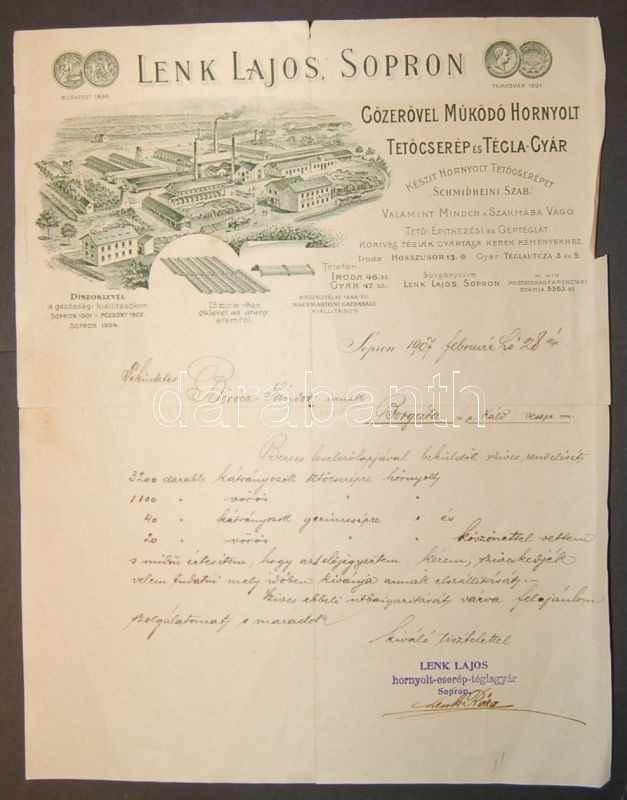 LENK LAJOS, SOPRON
BUDAPEST 1896.
TEMESVÁR 1891.
GŐZERŐVEL MŰKÖDŐ HORNYOLT
TETŐCSERÉP ÉS TÉGLA-GYÁR
KÉSZIT HORNYOLT TETŐCSERÉPET
„SCHMIDHEINI SZAB."
VALAMINT MINDEN A SZAKMÁBA VÁGÓ
TETŐ, ÉPITKEZÉSI ÉS GÉPTÉGLÁT
KÖRIVES TÉGLÁK GYÁRTÁSA KEREK KÉMÉNYEKHEZ
Iroda: HOSSZUSOR 13. Gyár: TÉGLAUTCZA 3 és 5
Telefon:
IRODA 46. SZ.
GYÁR 47. SZ.
Sürgönyczim
LENK LAJOS, SOPRON
POSTATAKARÉKPÉNZTÁRI
SZÁMLA 5563. SZ.
DÍSZOKLEVÉL
a gazdasági kiállitásokon
SOPRON 1901 - POZSONY 1902.
SOPRON 1904.
oklevél az arany
éremről.
NAGYMARTONI GAZDASÁGI
KIÁLLITÁSON
Sopron 1907 február hó 28 án
Tekintetes
Sándor urnak
u. p. Káló veszpr. m.
Becses levelezőlapjával beküldött szives rendelését
3200 darab kátrányozott tetőcserépre hornyolt,
1100 " vörös " "
40 " kátrányozott gerinczsépre " és
20 " vörös " " köszönettel vettem
s midőn értesitem, hogy azt előjegyeztem, kérem, sziveskedjék
velem tudatni mely időben kivánja annak elszállitását. -
Szives ebbeli utbaigazitását várva felajánlom
szolgálatomat, s maradok
kiváló tisztelettel
LENK LAJOS
hornyolt-cserép-téglagyár
Sopron.
Lenk Róza
darabanth